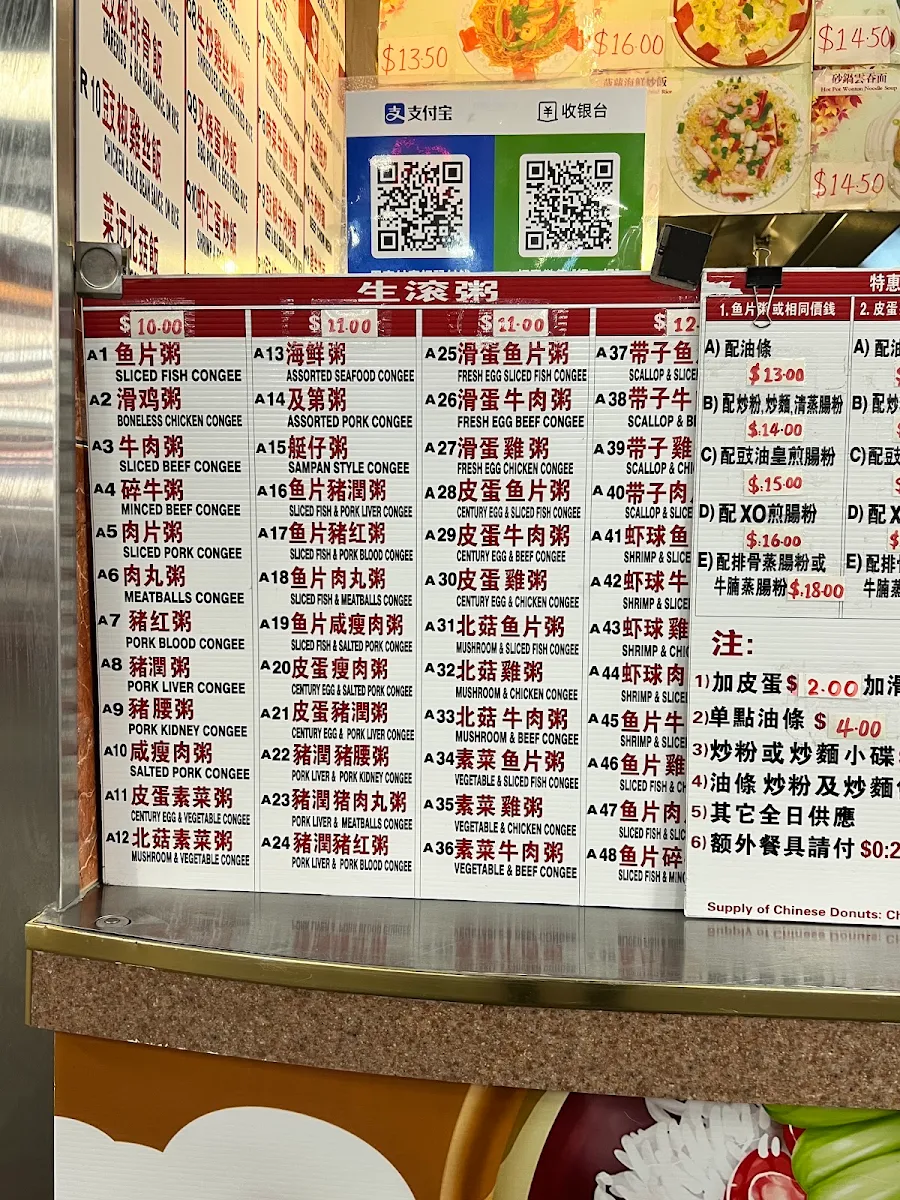 豉椒排骨飯
R 10
豉椒雞丝飯
CHICKEN & BLK BEAN SAUCE ON RICE
菜远北菇飯
叉烧蛋炒飯
虾仁蛋炒飯
$13.50
$16.00
$14.50
砂鍋雲春面
Hot Pot Wonton Noodle Soup
$14.50
支付宝
收银台
生滚粥
$10.00
A1 鱼片粥
SLICED FISH CONGEE
A2 滑鸡粥
BONELESS CHICKEN CONGEE
A3 牛肉粥
SLICED BEEF CONGEE
A4 碎牛粥
MINCED BEEF CONGEE
A5 肉片粥
SLICED PORK CONGEE
A6 肉丸粥
MEATBALLS CONGEE
A7 豬红粥
PORK BLOOD CONGEE
A8 豬潤粥
PORK LIVER CONGEE
A9 豬腰粥
PORK KIDNEY CONGEE
A10 咸瘦肉粥
SALTED PORK CONGEE
A11 皮蛋素菜粥
CENTURY EGG & VEGETABLE CONGEE
A12 北菇素菜粥
MUSHROOM & VEGETABLE CONGEE
$11.00
A13 海鲜粥
ASSORTED SEAFOOD CONGEE
A14 及第粥
ASSORTED PORK CONGEE
A15 艇仔粥
SAMPAN STYLE CONGEE
A16 鱼片豬潤粥
SLICED FISH & PORK LIVER CONGEE
A17 鱼片豬红粥
SLICED FISH & PORK BLOOD CONGEE
A18 鱼片肉丸粥
SLICED FISH & MEATBALLS CONGEE
A19 鱼片咸瘦肉粥
SLICED FISH & SALTED PORK CONGEE
A20 皮蛋瘦肉粥
CENTURY EGG & SALTED PORK CONGEE
A21 皮蛋豬潤粥
CENTURY EGG & PORK LIVER CONGEE
A22 豬潤豬腰粥
PORK LIVER & PORK KIDNEY CONGEE
A23 豬潤猪肉丸粥
PORK LIVER & MEATBALLS CONGEE
A24 豬潤豬红粥
PORK LIVER & PORK BLOOD CONGEE
$11.00
A25 滑蛋鱼片粥
FRESH EGG SLICED FISH CONGEE
A26 滑蛋牛肉粥
FRESH EGG BEEF CONGEE
A27 滑蛋雞粥
FRESH EGG CHICKEN CONGEE
A28 皮蛋鱼片粥
CENTURY EGG & SLICED FISH CONGEE
A29 皮蛋牛肉粥
CENTURY EGG & BEEF CONGEE
A30 皮蛋雞粥
CENTURY EGG & CHICKEN CONGEE
A31 北菇鱼片粥
MUSHROOM & SLICED FISH CONGEE
A32 北菇雞粥
MUSHROOM & CHICKEN CONGEE
A33 北菇牛肉粥
MUSHROOM & BEEF CONGEE
A34 素菜鱼片粥
VEGETABLE & SLICED FISH CONGEE
A35 素菜雞粥
VEGETABLE & CHICKEN CONGEE
A36 素菜牛肉粥
VEGETABLE & BEEF CONGEE
$12
A37 带子鱼
SCALLOP & SLICE
A38 带子牛
SCALLOP & B
A39 带子雞
SCALLOP & CHI
A40 带子肉
SCALLOP & SLICE
A41 虾球鱼
SHRIMP & SLICE
A42 虾球牛
SHRIMP & SLICE
A43 虾球雞
SHRIMP & CHI
A44 虾球肉
SHRIMP & SLICE
A45 鱼片牛
SHRIMP & SLICE
A46 鱼片雞
SLICED FISH & CH
A47 鱼片肉
SLICED FISH & SLIC
A48 鱼片碎
SLICED FISH & MINC
特惠
1. 鱼片粥或相同價錢
A) 配油條
$13.00
B) 配炒粉,炒麵,清蒸腸粉
$14.00
C) 配豉油皇煎腸粉
$15.00
D) 配XO煎腸粉
$16.00
E) 配排骨蒸腸粉或
牛腩蒸腸粉 $18.00
2. 皮蛋
A) 配油
B) 配炒
C) 配豉
D) 配X
E) 配排
牛腩
注:
1) 加皮蛋$2.00 加滑
2) 单點油條 $4.00
3) 炒粉或炒麵小碟
4) 油條炒粉及炒麵
5) 其它全日供應
6) 额外餐具請付 $0:2
Supply of Chinese Donuts: Ch